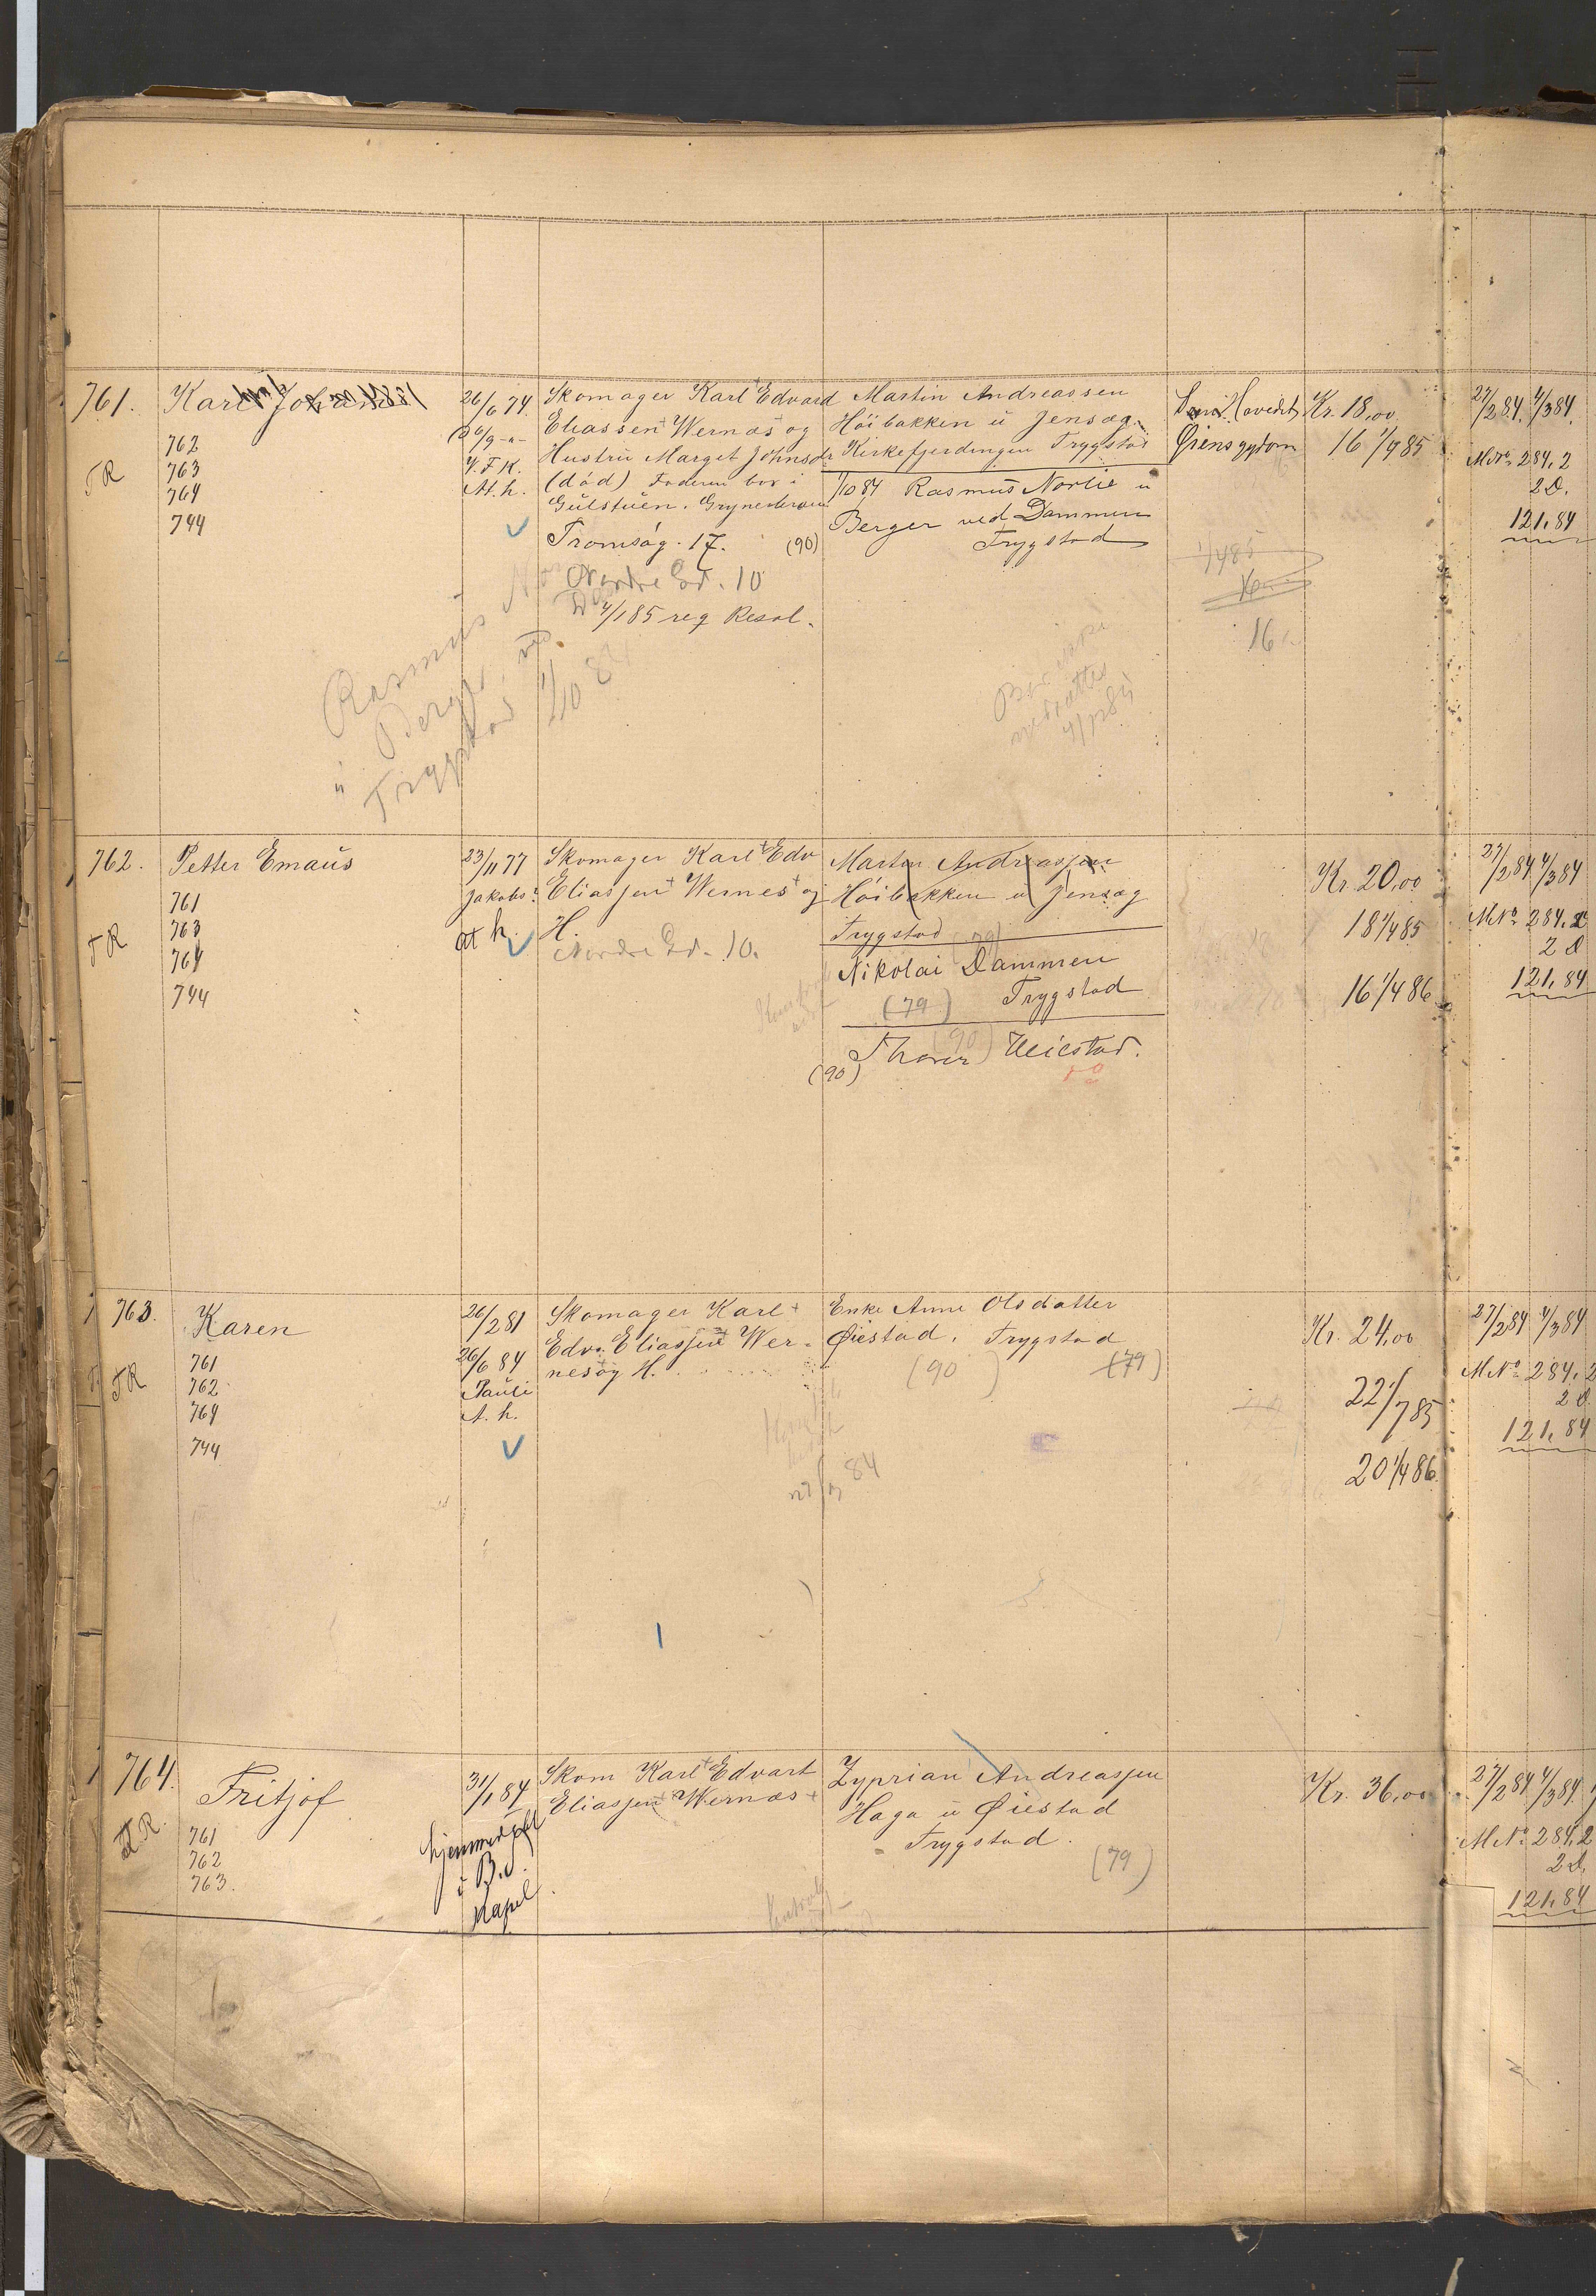 761.
Karl Johan
762
763
764
744
T R
26/6 74.
V. F. K.
At. h.
Skomager Karl Edvard
Eliassen Wernæs og
Hustru Marget Johnsdr
(död) Faderen bor i
Gülstuen. Grynerløkken
Tromsög. 17. (90)
Nordre Gd. 10
4/1 85 reg Resol.
Martin Andreassen
Höibakken u Jensæg.
Kirkefjerdingen Trygstad
1/10 84 Rasmus Norlie u
Berger ved Dammen
Trygstad
Øiensygdom
Kr. 18,00
16 1/4 85
1/4 85
16
27/2 84. 4/3 84.
M No 284. 2
2 D.
121. 84
Rasmus
u Berger ved
Trygstad 1/10 84
762.
Petter Emaus
761
763
764
744
T R
23/11 77
Jakobs
At h.
Skomager Karl Edv
Eliassen Wernes og
H.
Nordre Gd. 10.
Martin Andreassen
Höibakken u Jensæg
Trygstad (79)
Nikolai Dammen
(79) Trygstad
(90)
(90)
Kr. 20,00
18 1/4 85
16 1/4 86
27/2 84 4/3 84
M No 284. 2
2 D
121, 84
763.
Karen
761
762
764
744
T R
26/2 81
26/6 84
Pauli
A. h.
Skomager Karl
Edv. Eliassen Wer-
nes og H.
Enke Anne Olsdatter
Øiestad. Trygstad
(90) (79)
Kr. 24,00
22 1/7 85
20 1/4 86
27/2 84 4/3 84
M No 284. 2
2 D
121, 84
764.
Fritjof
761
762
763.
31/1 84
hjemmedøbt
i B.d.
Kapel.
Skom Karl Edvart
Eliassen Wernæs
Zyprian Andreassen
Haga u Øiestad
Trygstad.
(79)
Kr. 36,00
27/2 84 4/3 84
M No 284, 2
2 D,
121, 84